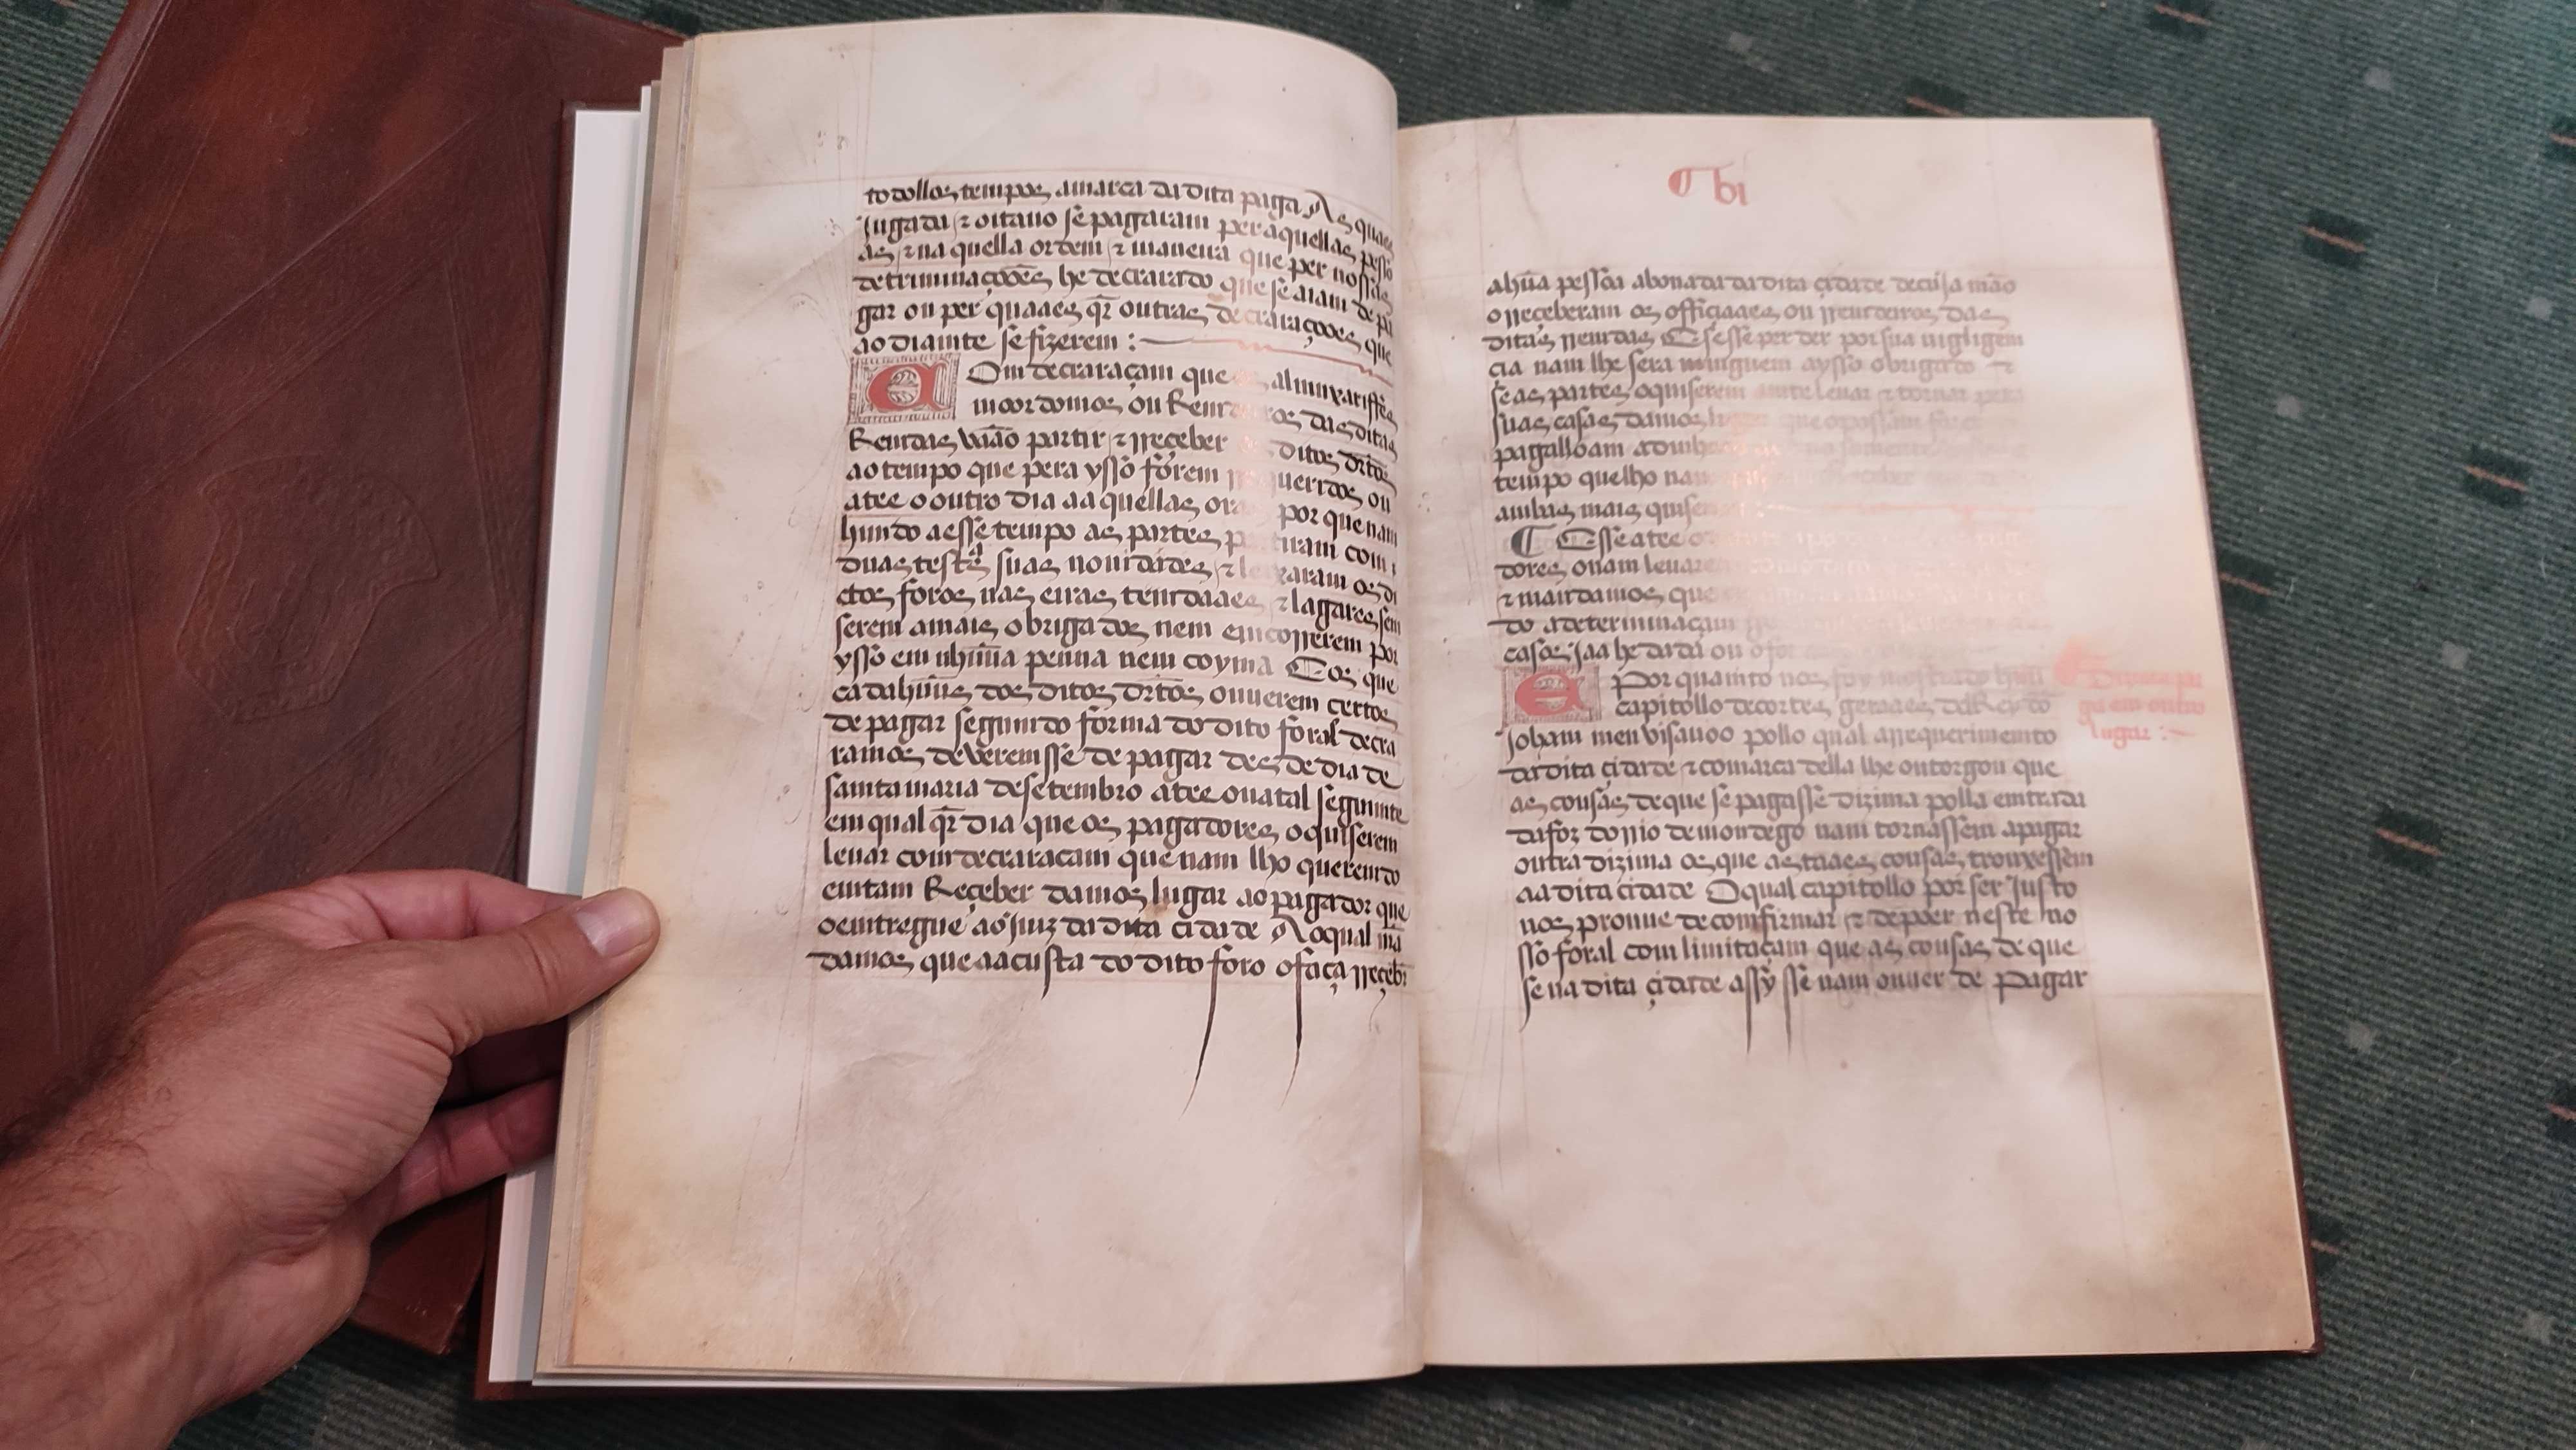 todollos tempos amarca da dita paga As quaes
Jugada ⁊ oitauo se pagaram per aquellas pesso
as, ⁊ na quella ordem ⁊ maneira que per nossas
detriminaçoões he decrarado que se aiam de pa
gar ou per quaaes qr̃ outras decraraçoões que
ao diamte se fizerem :
Com decraraçam que os almuxariffes
moordomos ou Remdeiros das ditas
Remdas vaão partir ⁊ rreçeber os ditos dr̃tos
ao tempo que pera ysso forem rrequeridos ou
atee o outro dia aa quellas oras por que nam
himdo a esse tempo as partes partiram com
duas testas suas nouidades, ⁊ leixaram os di
ctos foros nas eiras temdaaes, ⁊ lagares sem
serem a mais obrigados nem emcorrerem por
ysso em nhũua penna nem coyma E os que
cadahuũs dos ditos dr̃tos ouuerem certos
de pagar segumdo forma do dito foral decra
ramos deveremsse de pagar des de dia de
samta maria de setembro atee o natal seguimte
em qual qr̃ dia que os pagadores o quiserem
leuar com decraracam que nam lho queremdo
emtam Reçeber damos lugar ao pagador que
o emtregue ao Juiz da dita cidade Ao qual mã
damos que aa custa do dito foro o faça rreçeb̃
¶ bi
a hũa pessoa abonada da dita çidade de cuja mão
o rreceberam os offiçiaaes ou rremdeiros das
ditas rremdas E se sse perder por sua nigligem
cia nam lhe sera nimguem a ysso obrigado ⁊
se as partes o quiserem amte leuar ⁊ tornar pera
suas casas damos lugar que o possam fazer
pagalloam a dinheiro
tempo quelho nam
ambas mais quiserem
¶ E sse atee o
dores o nam leuarem
⁊ mandamos que
do a determinaçam
casos Jaa he dada ou o for
E Por quamto nos foy mostrado huũ
capitollo de cortes geraaes delRey dõ
Joham meu bisauoo pollo qual a rrequerimemto
da dita çidade ⁊ comarca della lhe outorgou que
as cousas de que se pagasse dizima polla emtrada
da foz do rrio de momdego nam tornassem a pagar
outra dizima os que as taaes cousas trouxessem
aa dita cidade O qual capitollo por ser Justo
nos prouue de comfirmar ⁊ de poer neste no
sso foral com limitaçam que as cousas de que
se na dita çidade assy sse nam ouuer de Pagar
Dizima pa
ga em outro
lugar :